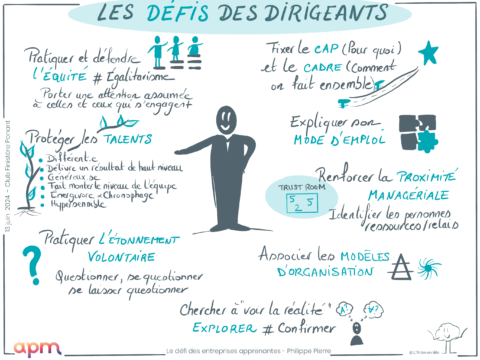 LES DÉFIS DES DIRIGEANTS
Pratiquer et défendre
L'ÉQUITÉ # Égalitarisme
Porter une attention assumée
à celles et ceux qui s'engagent
Protéger les TALENTS
• Différent.e
• Délivre un résultat de haut niveau
• Généreux.se
• Fait monter le niveau de l'équipe
• Energivore & Chronophage
• Hypersensible
Pratiquer L'ÉTONNEMENT
VOLONTAIRE
?
Questionner, se questionner
se laisser questionner
Fixer le CAP (Pour quoi)
et le CADRE (Comment
on fait ensemble)
Expliquer son
MODE D'EMPLOI
Renforcer la PROXIMITÉ
MANAGÉRIALE
TRUST ROOM
5 5
2
Identifier les personnes
ressources/relais
Associer les MODÈLES
D'ORGANISATION
Chercher à "voir la réalité"
EXPLORER # Confirmer
13 juin 2024 - Club Finistère Ponant
apm
Le défi des entreprises apprenantes - Philippe Pierre